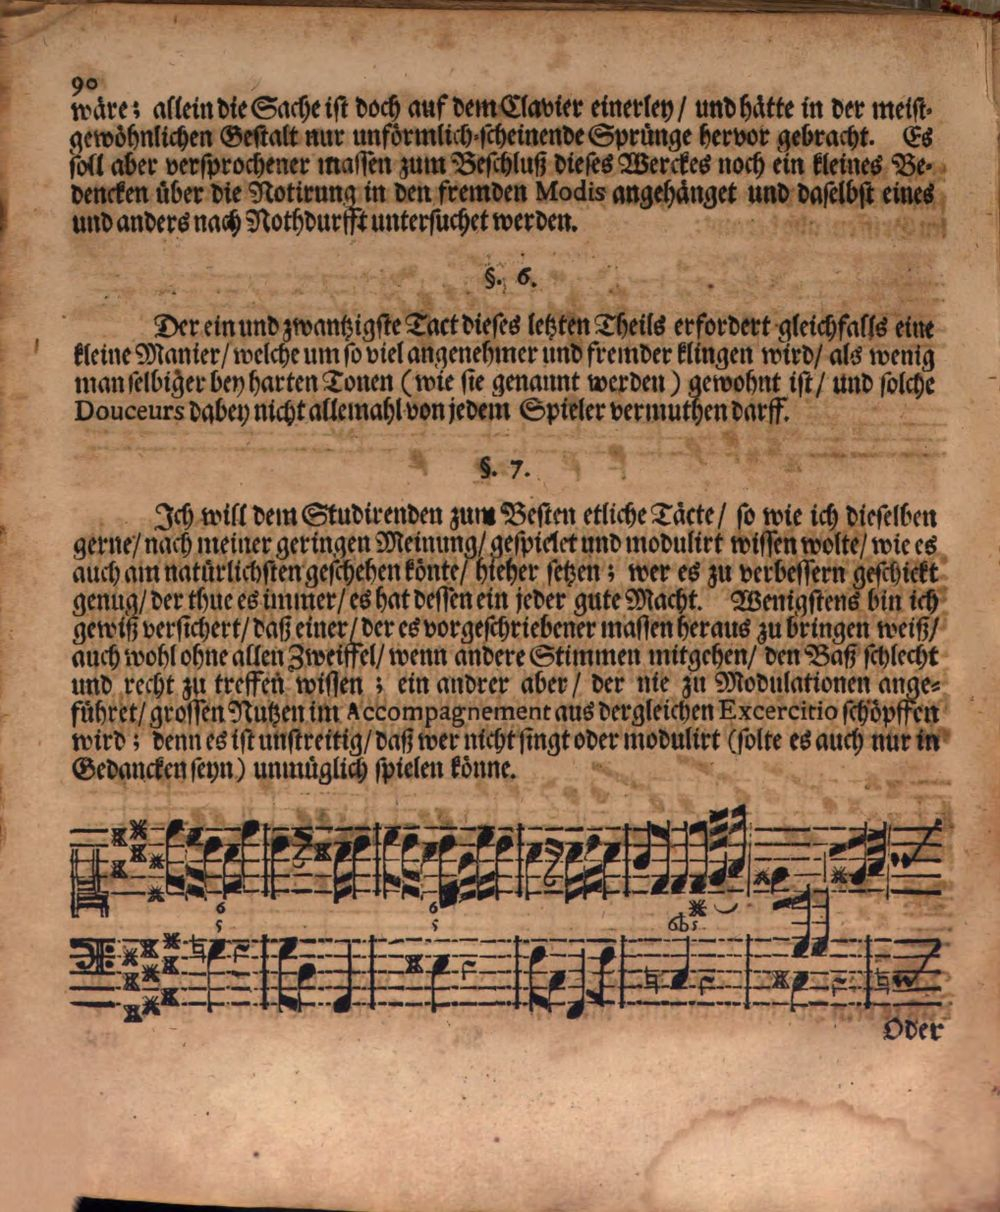 90
wäre; allein die Sache ist doch auf dem Clavier einerley/ und hätte in der meist-
gewöhnlichen Gestalt nur unförmlich-scheinende Sprünge hervor gebracht. Es
soll aber versprochener massen zum Beschluß dieses Werckes noch ein kleines Be-
dencken über die Notirung in den fremden Modis angehänget und daselbst eines
und anders nach Nothdurfft untersuchet werden.
§. 6.
Der ein und zwantzigste Tact dieses letzten Theils erfordert gleichfalls eine
kleine Manier/ welche um so viel angenehmer und fremder klingen wird/ als wenig
man selbiger bey harten Tonen (wie sie genannt werden) gewohnt ist/ und solche
Douceurs dabey nicht allemahl von jedem Spieler vermuthen darff.
§. 7.
Ich will dem Studirenden zum Besten etliche Täcte/ so wie ich dieselben
gerne/ nach meiner geringen Meinung/ gespielet und modulirt wissen wolte/ wie es
auch am natürlichsten geschehen könte/ hieher setzen; wer es zu verbessern geschickt
genug/ der thue es immer/ es hat dessen ein jeder gute Macht. Wenigstens bin ich
gewiß versichert/ daß einer/ der es vorgeschriebener massen heraus zu bringen weiß/
auch wohl ohne allen Zweiffel/ wenn andere Stimmen mitgehen/ den Baß schlecht
und recht zu treffen wissen; ein andrer aber/ der nie zu Modulationen ange-
führet/ grossen Nutzen im Accompagnement aus dergleichen Excercitio schöpffen
wird; denn es ist unstreitig/ daß wer nicht singt oder modulirt (solte es auch nur in
Gedancken seyn) unmüglich spielen könne.
6 6
5 5 6b5
Oder